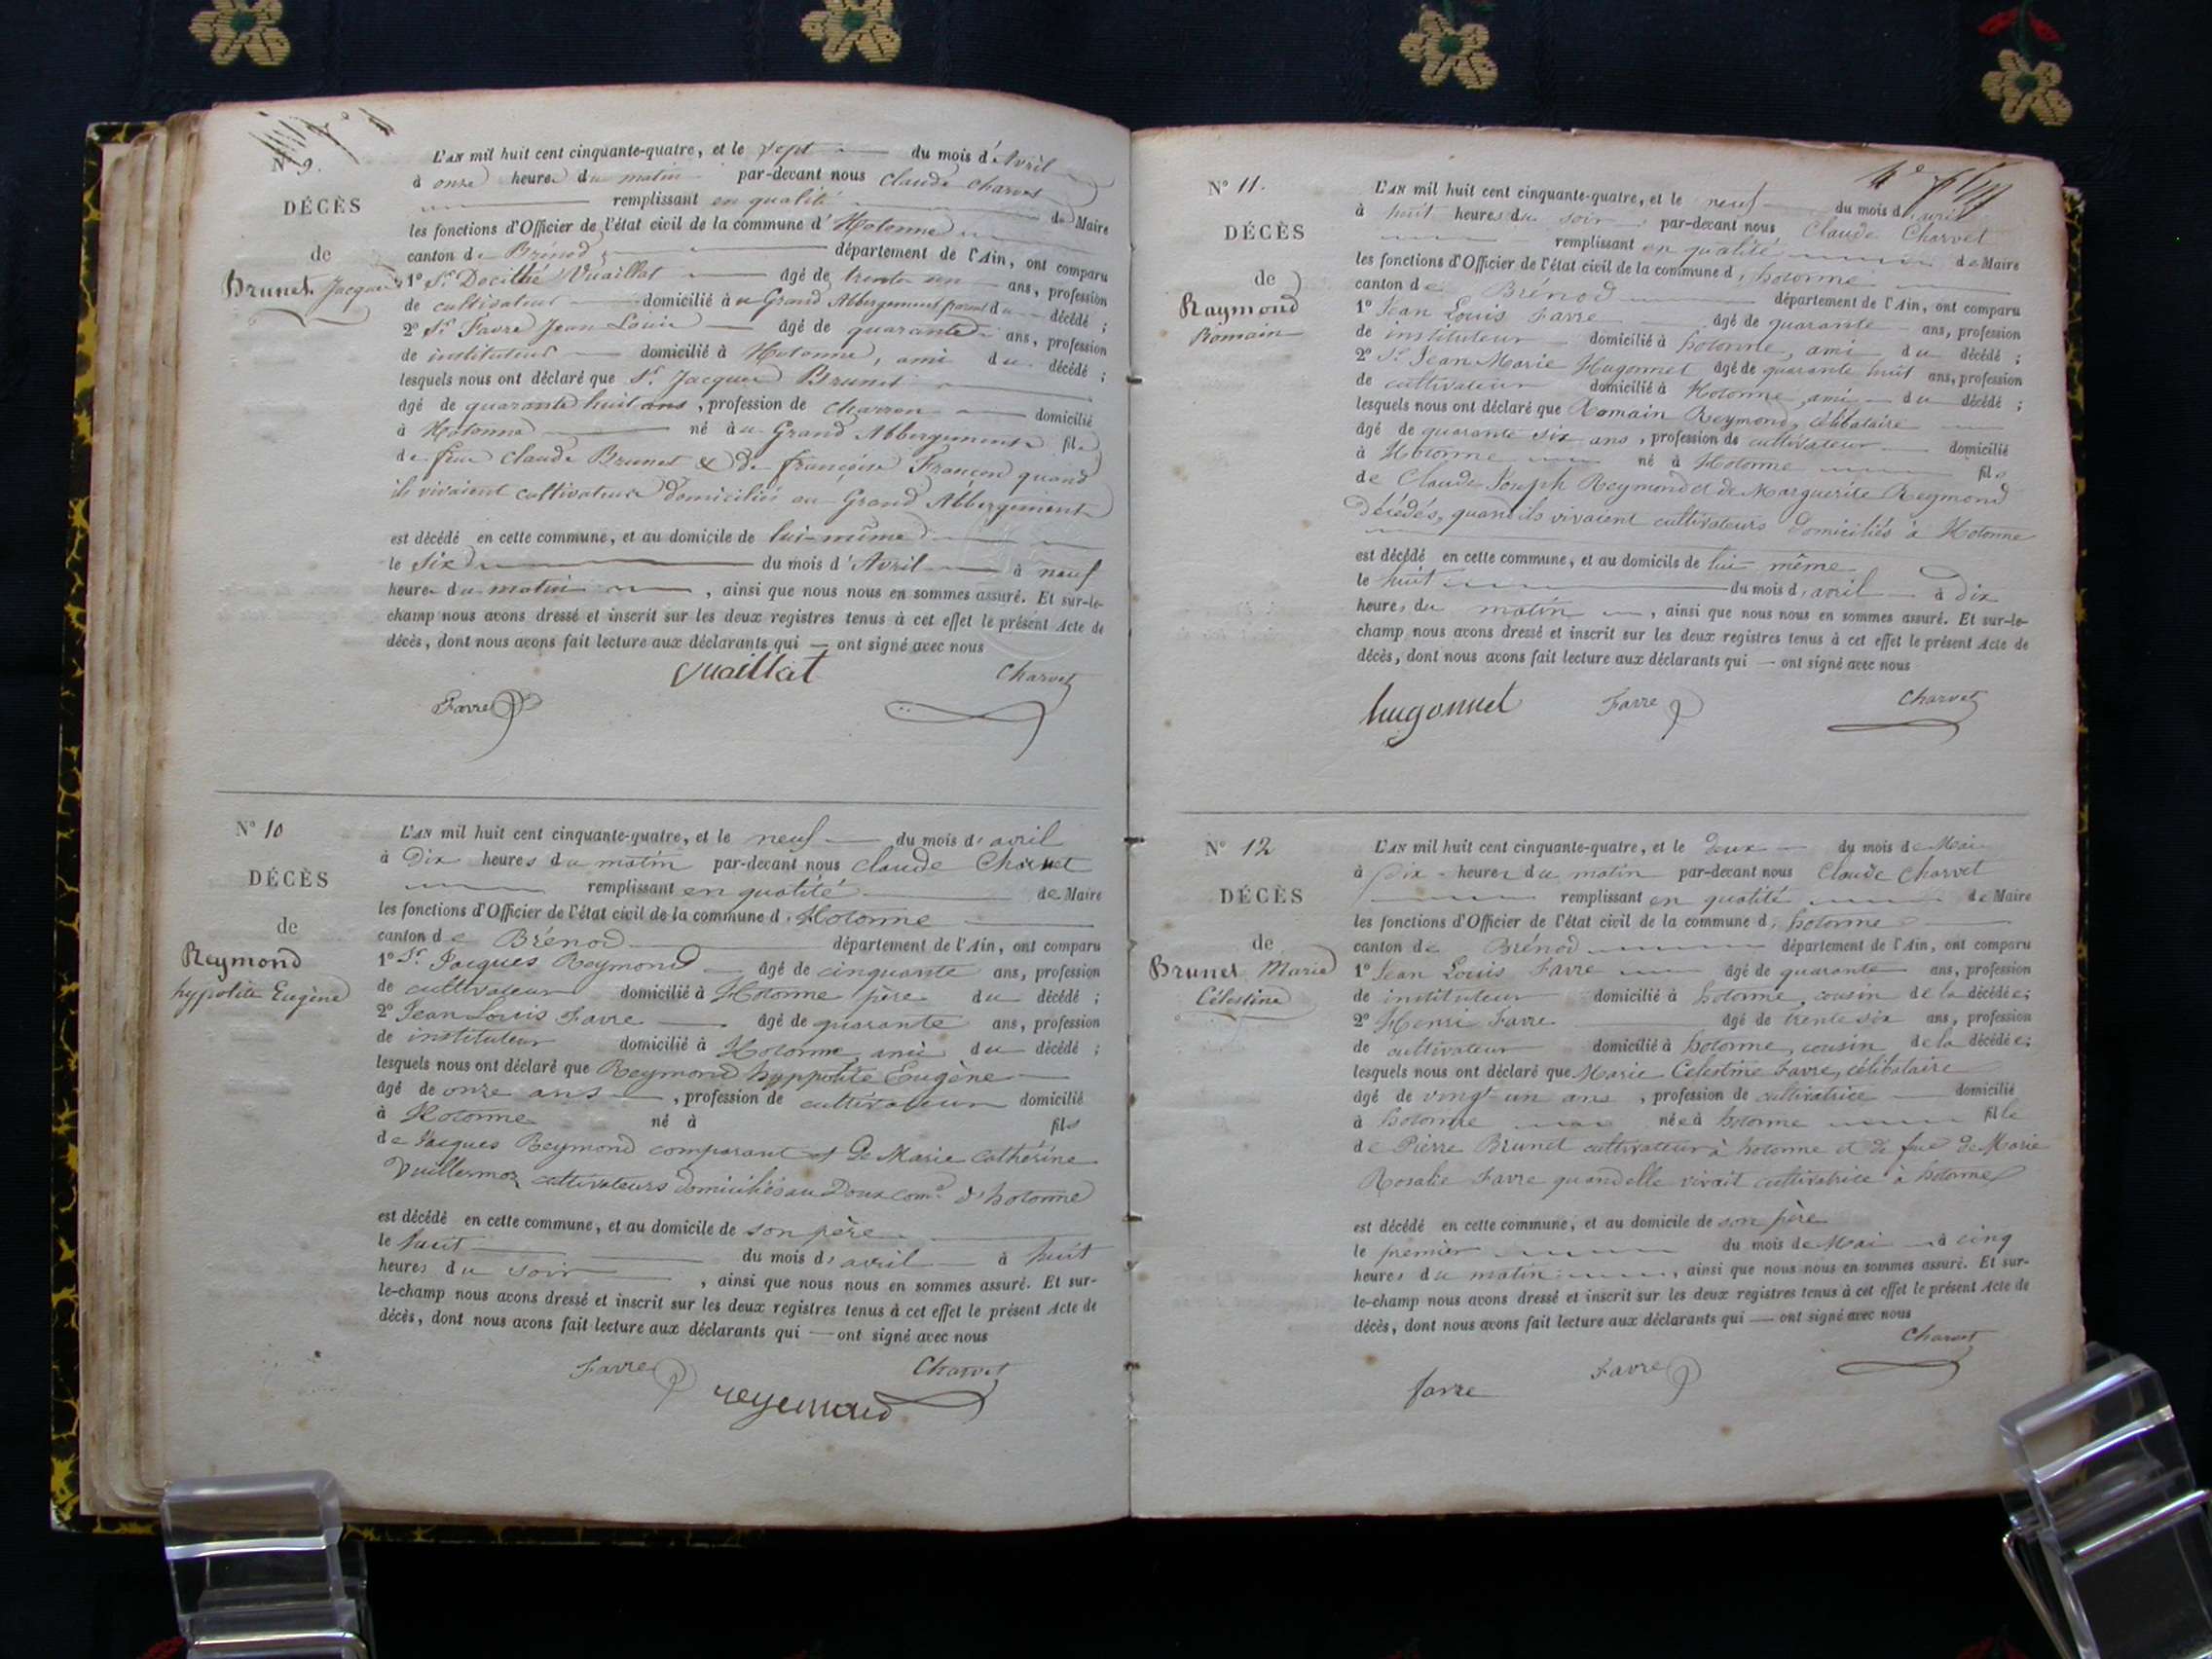 N° 9.
DÉCÈS
de
Brunet Jacques
L'AN mil huit cent cinquante-quatre, et le sept du mois d'Avril
à onze heures du matin par-devant nous Claude Charvet
remplissant en qualité de Maire
les fonctions d'Officier de l'état civil de la commune d'Hotonne
canton de Brénod département de l'Ain, ont comparu
1° Sr Docithé Vuaillat âgé de trente un ans, profession
de cultivateur domicilié à au Grand Abbergement parent du décédé ;
2° Sr Favre Jean Louis âgé de quarante ans, profession
de instituteur domicilié à Hotonne, ami du décédé ;
lesquels nous ont déclaré que Sr Jacques Brunet
âgé de quarante huit ans, profession de Charron domicilié
à Hotonne né à au Grand Abbergement fils
de feu Claude Brunet & de françoise Françon quand
ils vivaient cultivateurs domiciliés au Grand Abbergement
est décédé en cette commune, et au domicile de lui-même
le six du mois d'Avril à neuf
heures du matin, ainsi que nous nous en sommes assuré. Et sur-le-
champ nous avons dressé et inscrit sur les deux registres tenus à cet effet le présent Acte de
décès, dont nous avons fait lecture aux déclarants qui — ont signé avec nous
Vuaillat
Charvet
Favre
N° 10
DÉCÈS
de
Reymond
hypolite Eugène
L'AN mil huit cent cinquante-quatre, et le neuf du mois d'avril
à Dix heures du matin par-devant nous Claude Charvet
remplissant en qualité de Maire
les fonctions d'Officier de l'état civil de la commune d'Hotonne
canton de Brénod département de l'Ain, ont comparu
1° Sr Jacques Reymond âgé de cinquante ans, profession
de cultivateur domicilié à Hotonne père du décédé ;
2° Jean Louis Favre âgé de quarante ans, profession
de instituteur domicilié à Hotonne, ami du décédé ;
lesquels nous ont déclaré que Reymond hyppolite Eugène
âgé de onze ans, profession de cultivateur domicilié
à Hotonne né à fils
de Jacques Reymond comparant et de Marie Catherine
Vuillermoz cultivateurs domiciliés au Doux come d'hotonne
est décédé en cette commune, et au domicile de son père
le huit du mois d'avril à huit
heures du soir, ainsi que nous nous en sommes assuré. Et sur-
le-champ nous avons dressé et inscrit sur les deux registres tenus à cet effet le présent Acte de
décès, dont nous avons fait lecture aux déclarants qui — ont signé avec nous
Favre Charvet
reymond
N° 11.
DÉCÈS
de
Raymond
Romain
L'AN mil huit cent cinquante-quatre, et le neuf du mois d'avril
à huit heures du soir par-devant nous Claude Charvet
remplissant en qualité de Maire
les fonctions d'Officier de l'état civil de la commune d'hotonne
canton de Brénod département de l'Ain, ont comparu
1° Jean Louis Favre âgé de quarante ans, profession
de instituteur domicilié à hotonne, ami du décédé ;
2° Sr Jean Marie Hugonnet âgé de quarante huit ans, profession
de cultivateur domicilié à Hotonne, ami du décédé ;
lesquels nous ont déclaré que Romain Reymond, célibataire
âgé de quarante six ans, profession de cultivateur domicilié
à Hotonne né à Hotonne fils
de Claude Joseph Reymond et de Marguerite Reymond
Décédés, quand ils vivaient cultivateurs domiciliés à Hotonne
est décédé en cette commune, et au domicile de lui même
le huit du mois d'avril à dix
heures du matin, ainsi que nous nous en sommes assuré. Et sur-le-
champ nous avons dressé et inscrit sur les deux registres tenus à cet effet le présent Acte de
décès, dont nous avons fait lecture aux déclarants qui — ont signé avec nous
hugonnet Favre Charvet
N° 12
DÉCÈS
de
Brunet Marie
Célestine
L'AN mil huit cent cinquante-quatre, et le deux du mois de Mai
à Dix heures du matin par-devant nous Claude Charvet
remplissant en qualité de Maire
les fonctions d'Officier de l'état civil de la commune d'hotonne
canton de Brénod département de l'Ain, ont comparu
1° Jean Louis Favre âgé de quarante ans, profession
de instituteur domicilié à hotonne, cousin de la décédée ;
2° Henri Favre âgé de trente six ans, profession
de cultivateur domicilié à hotonne, cousin de la décédée ;
lesquels nous ont déclaré que Marie Celestine Favre, célibataire
âgé de vingt un ans, profession de cultivatrice domicilié
à hotonne née à hotonne fille
de Pierre Brunet cultivateur à hotonne et de fue de Marie
Rosalie Favre quand elle vivait cultivatrice à hotonne
est décédé en cette commune, et au domicile de son père
le premier du mois de Mai à cinq
heures du matin, ainsi que nous nous en sommes assuré. Et sur-
le-champ nous avons dressé et inscrit sur les deux registres tenus à cet effet le présent Acte de
décès, dont nous avons fait lecture aux déclarants qui — ont signé avec nous
Charvet
Favre
favre